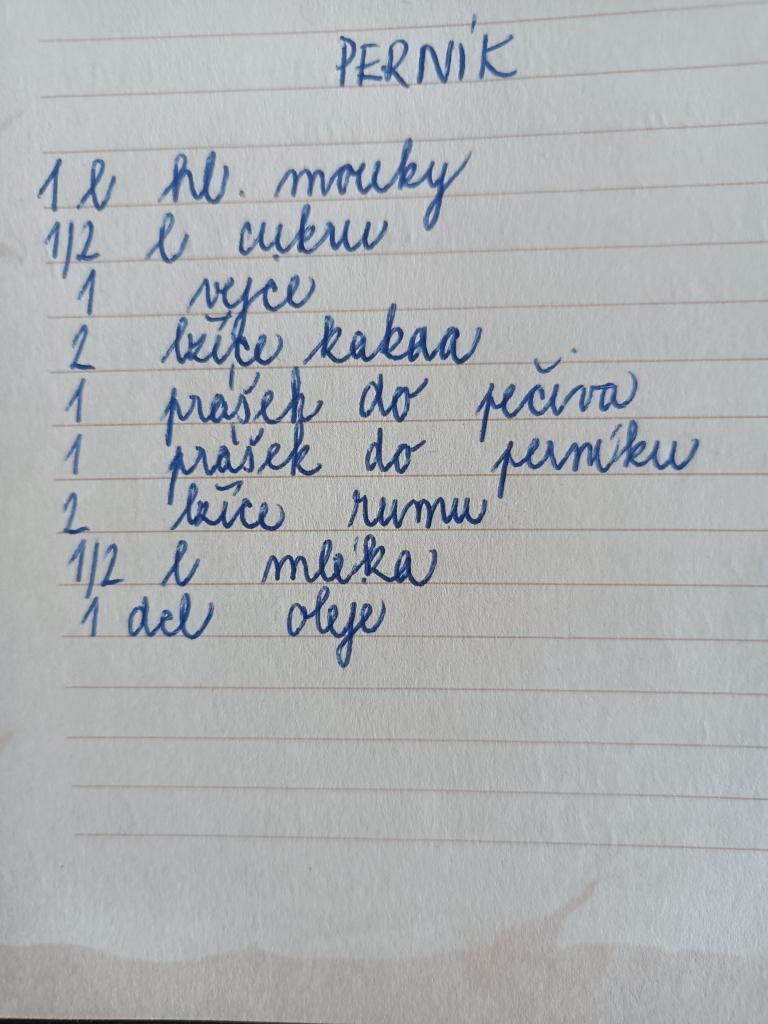 PERNÍK
1 l hl. mouky
1/2 l cukru
1 vejce
2 lžíce kakaa
1 prášek do pečiva
1 prášek do perníku
2 lžíce rumu
1/2 l mléka
1 dcl oleje